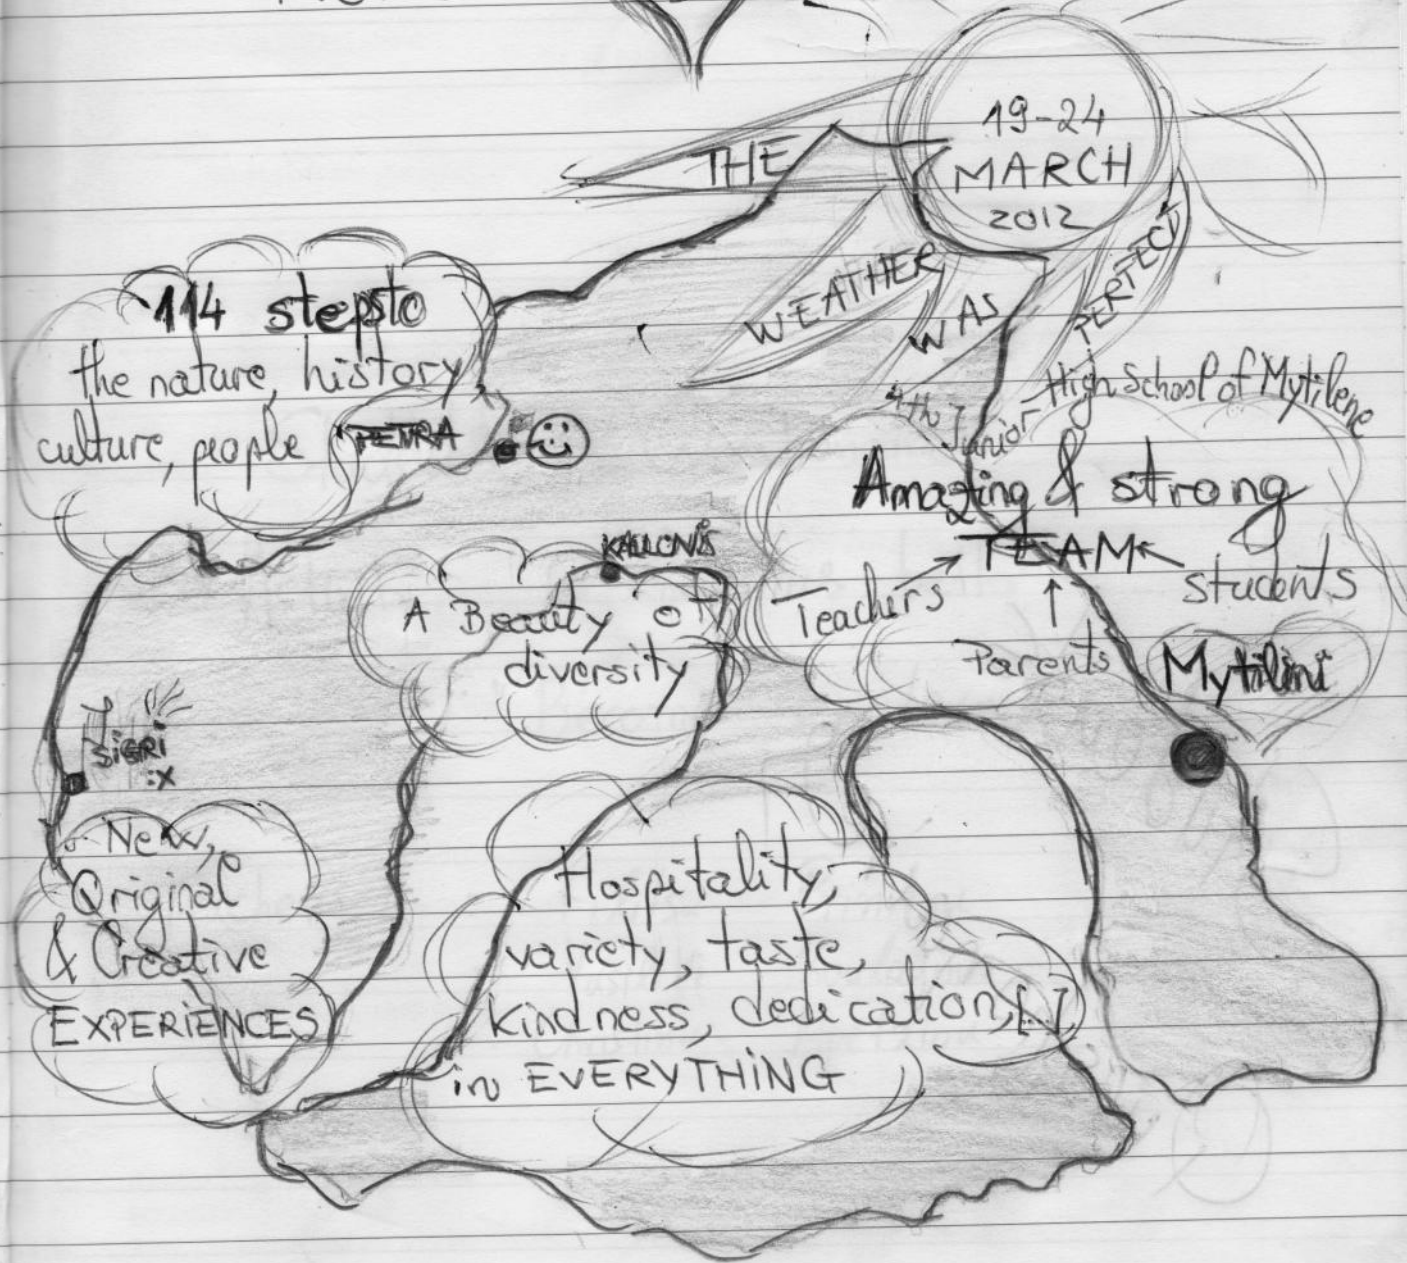 19-24
MARCH
2012
THE
WEATHER
WAS
PERFECT
114 steps to
the nature, history
culture, people
PETRA
4th Junior High School of Mytilene
Amazing & strong
TEAM
Teachers
students
Parents
Mytilini
KALLONIS
A Beauty of
diversity
SiGRi
:X
New,
Original
& Creative
EXPERiENCES
Hospitality,
variety, taste,
kindness, dedication, [...]
in EVERYTHiNG